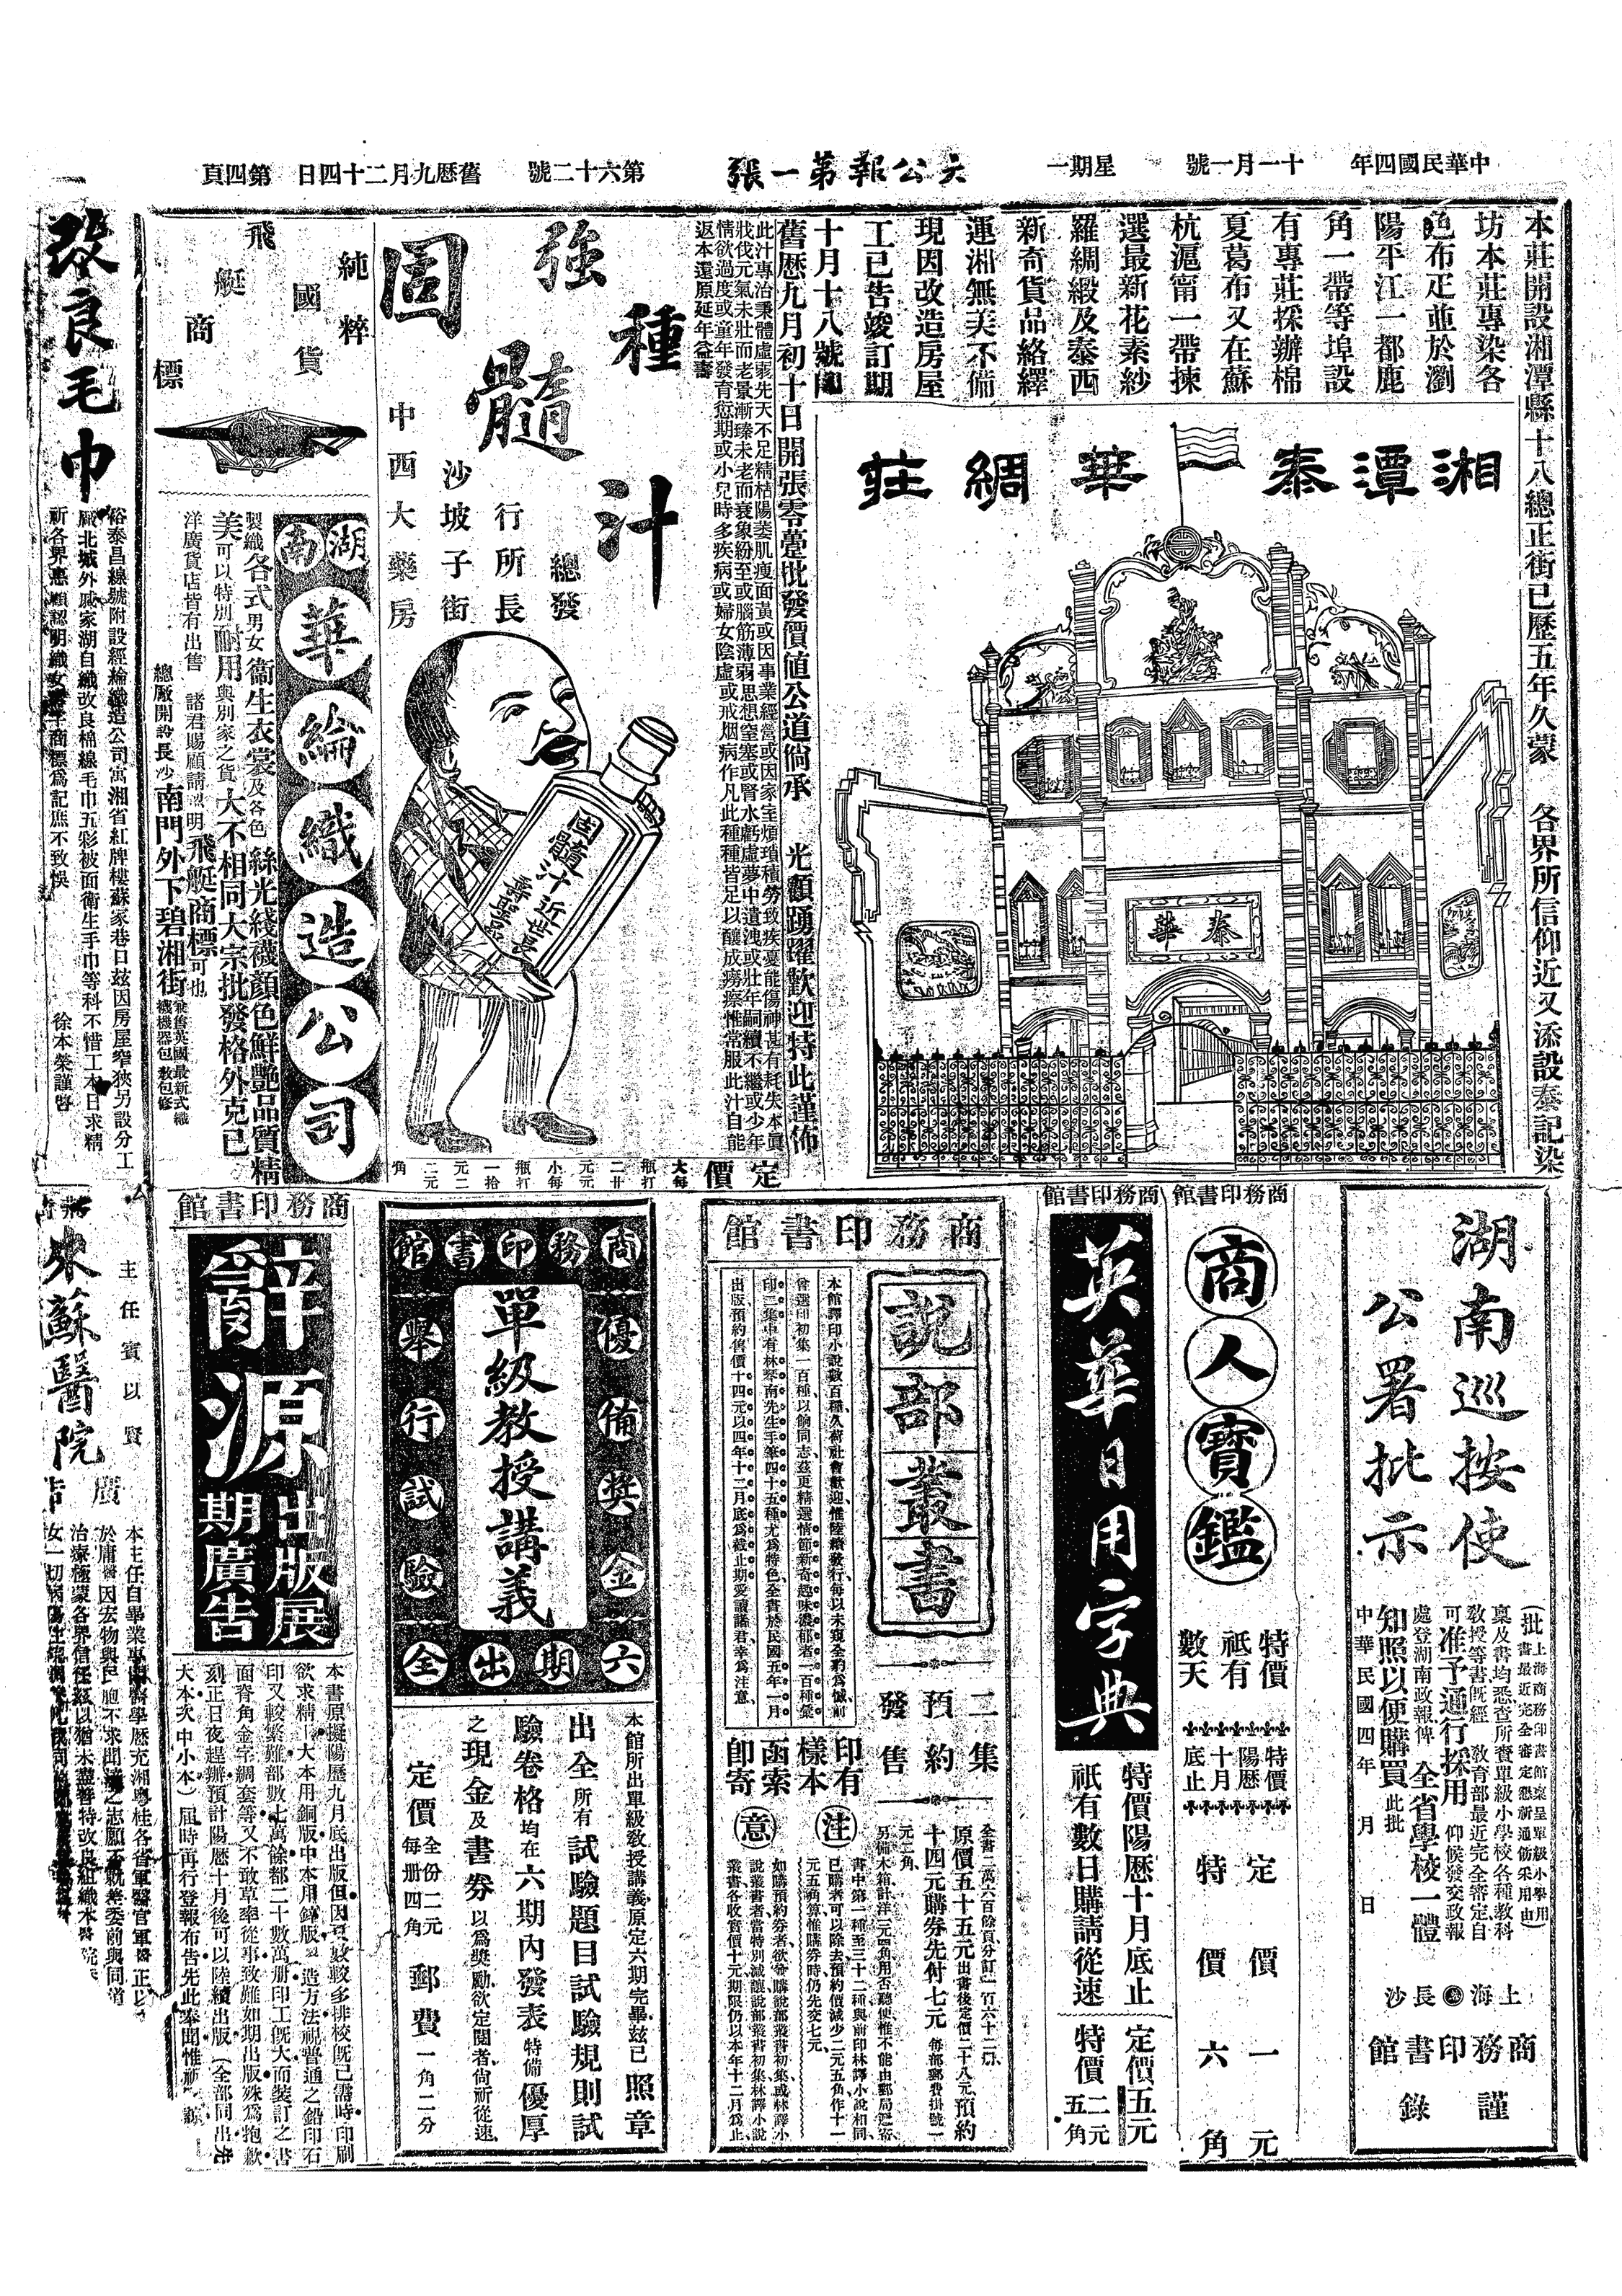 中華民國四年
十一月一號
星期一
大公報第一張
第六十二號
舊歷九月二十四日
第四頁
本莊開設湘潭縣十八總正街已歷五年久蒙　各界所信仰近又添設泰記染
坊本莊專染各
色布疋並於瀏
陽平江一都鹿
角一帶等埠設
有專莊採辦棉
夏葛布又在蘇
杭滬甯一帶揀
選最新花素紗
羅綢緞及泰西
新奇貨品絡繹
運湘無美不備
現因改造房屋
工已告竣訂期
十月十八號即
舊歷九月初十日開張零躉批發價値公道倘承　光顧踴躍歡迎特此謹佈
湘潭泰華綢莊
泰華
強種
固髓汁
總發
行所長
沙坡子街
中西大藥房
此汁專治秉體虛弱先天不足精枯陽萎肌瘦面黃或因事業經營或因家室煩瑣積勞致疾憂能傷神甚有耗失本眞
戕伐元氣未壯而老景漸臻未老而衰象紛至或腦筋薄弱思想窒塞或腎水虧虛夢中遺洩或壯年嗣續不繼或少年
情欲過度或童年發育愆期或小兒時多疾病或婦女陰虛或戒烟病作凡此種種皆足以釀成癆瘵惟常服此汁自能
返本還原延年益壽
定價
大瓶每打二十元
小瓶每打一十二元
純粹
國貨
飛艇商標
湖南
華綸織造公司
製織各式男女衞生衣裳及各色絲光綫襪顏色鮮艷品質精
美可以特別耐用與別家之貨大不相同大宗批發格外克己
洋廣貨店皆有出售　諸君賜顧請認明飛艇商標可也
總廠開設長沙南門外下碧湘街
兼售英國最新式織
襪機器包教包修
改良毛巾
裕泰昌線號附設經綸織造公司寓湘省紅牌樓蘇家巷日玆因房屋窄狹另設分工
廠北城外戚家湖自織改良棉線毛巾五彩被面衞生手巾等科不惜工本日求精
祈各界惠顧認明織女牌字商標爲記庶不致悞
徐本榮謹啓
湖南巡按使
公署批示
（批上海商務印書館稟呈單級小學用
書最近完全審定懇新通飭采用由）
稟及書均悉查所賫單級小學校各種教科
敎授等書旣經　敎育部最近完全審定自
可准予通行採用　仰候發交政報
處登湖南政報俾　全省學校一體
知照以便購買此批
中華民國四年　月　日
上海　長沙
商務印書館
謹錄
商務印書館
商人寶鑑
特價
祇有
數天
特價
陽歷
十月
底止
定價一元
特價六角
商務印書館
英華日用字典
特價陽歷十月底止
祇有數日購請從速
定價五元
特價二元五角
商務印書館
說部叢書
二集
預約
發售
本館譯印小說數百種久荷社會歡迎惟陸續發行每以未窺全豹爲憾前
曾選印初集一百種以餉同志茲更精選情節新奇趣味濃郁者一百種彙
印二集中有林琴南先生手筆四十五種尤爲特色全書於民國五年一月
出版預約售價十四元以四年十二月底爲截止期愛讀諸君幸爲注意
印有
樣本
函索
即寄
全書二萬六百餘頁分訂一百六十二册
原價五十五元出書後定價二十八元預約
十四元購券先付七元
注意
書中第一種至三十二種與前印林譯小說相同
已購者可以除去預約價減少二元五角作十一
元五角算惟購券時仍先交七元
如購預約券者欲曾購說部叢書初集或林譯小
說叢書者當特別減讓說部叢書初集林譯小說
叢書各收實價十元期限仍以本年十二月爲止
商務印書館
優備獎金
舉行試驗
單級教授講義
六期出全
本館所出單級敎授講義原定六期完畢茲已照章
出全所有試驗題目試驗規則試
驗卷格均在六期內發表特備優厚
之現金及書券以爲獎勵欲定閱者尙祈從速
定價
全份二元
每册四角
郵費一角二分
商務印書館
辭源
出版展
期廣告
本書原擬陽歷九月底出版但因頁數較多排校旣已需時印刷
欲求精（大本用銅版中本用鋅版）製造方法視普通之鉛印石
印又較繁難部數七萬餘部二十數萬册印工旣大而裝訂之書
面脊角金字綢套等又不敢草率從事致難如期出版殊爲抱歉
刻正日夜趕辦預計陽歷十月後可以陸續出版（全部同出先
大本次中小本）屆時再行登報布告先此奉聞惟祈
主任賓以賢
來蘇醫院
廣